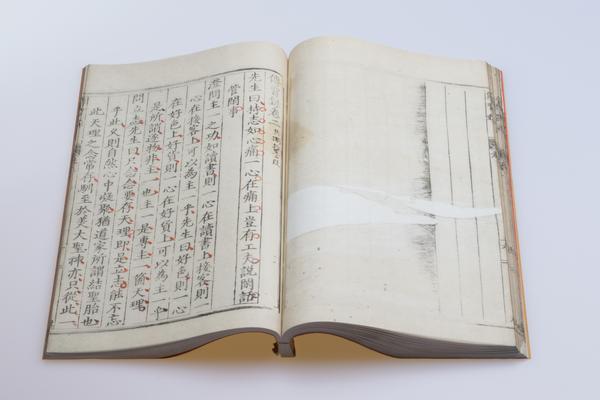 傳習錄卷二
先生曰持志如心痛一心在痛上豈有工夫說閒話
管閒事
澄問主一之功如讀書則一心在讀書上接客則一
心在接客上可以為主一乎先生曰好色則一心
在好色上好貨則一心在好貨上可以為主一乎
是所謂逐物非主一也主一是專主一箇天理
問立志先生曰只念念要存天理即是立志能不忘
乎此久則自然心中凝聚猶道家所謂結聖胎也
此天理之念常存馴至於美大聖神亦只從此一